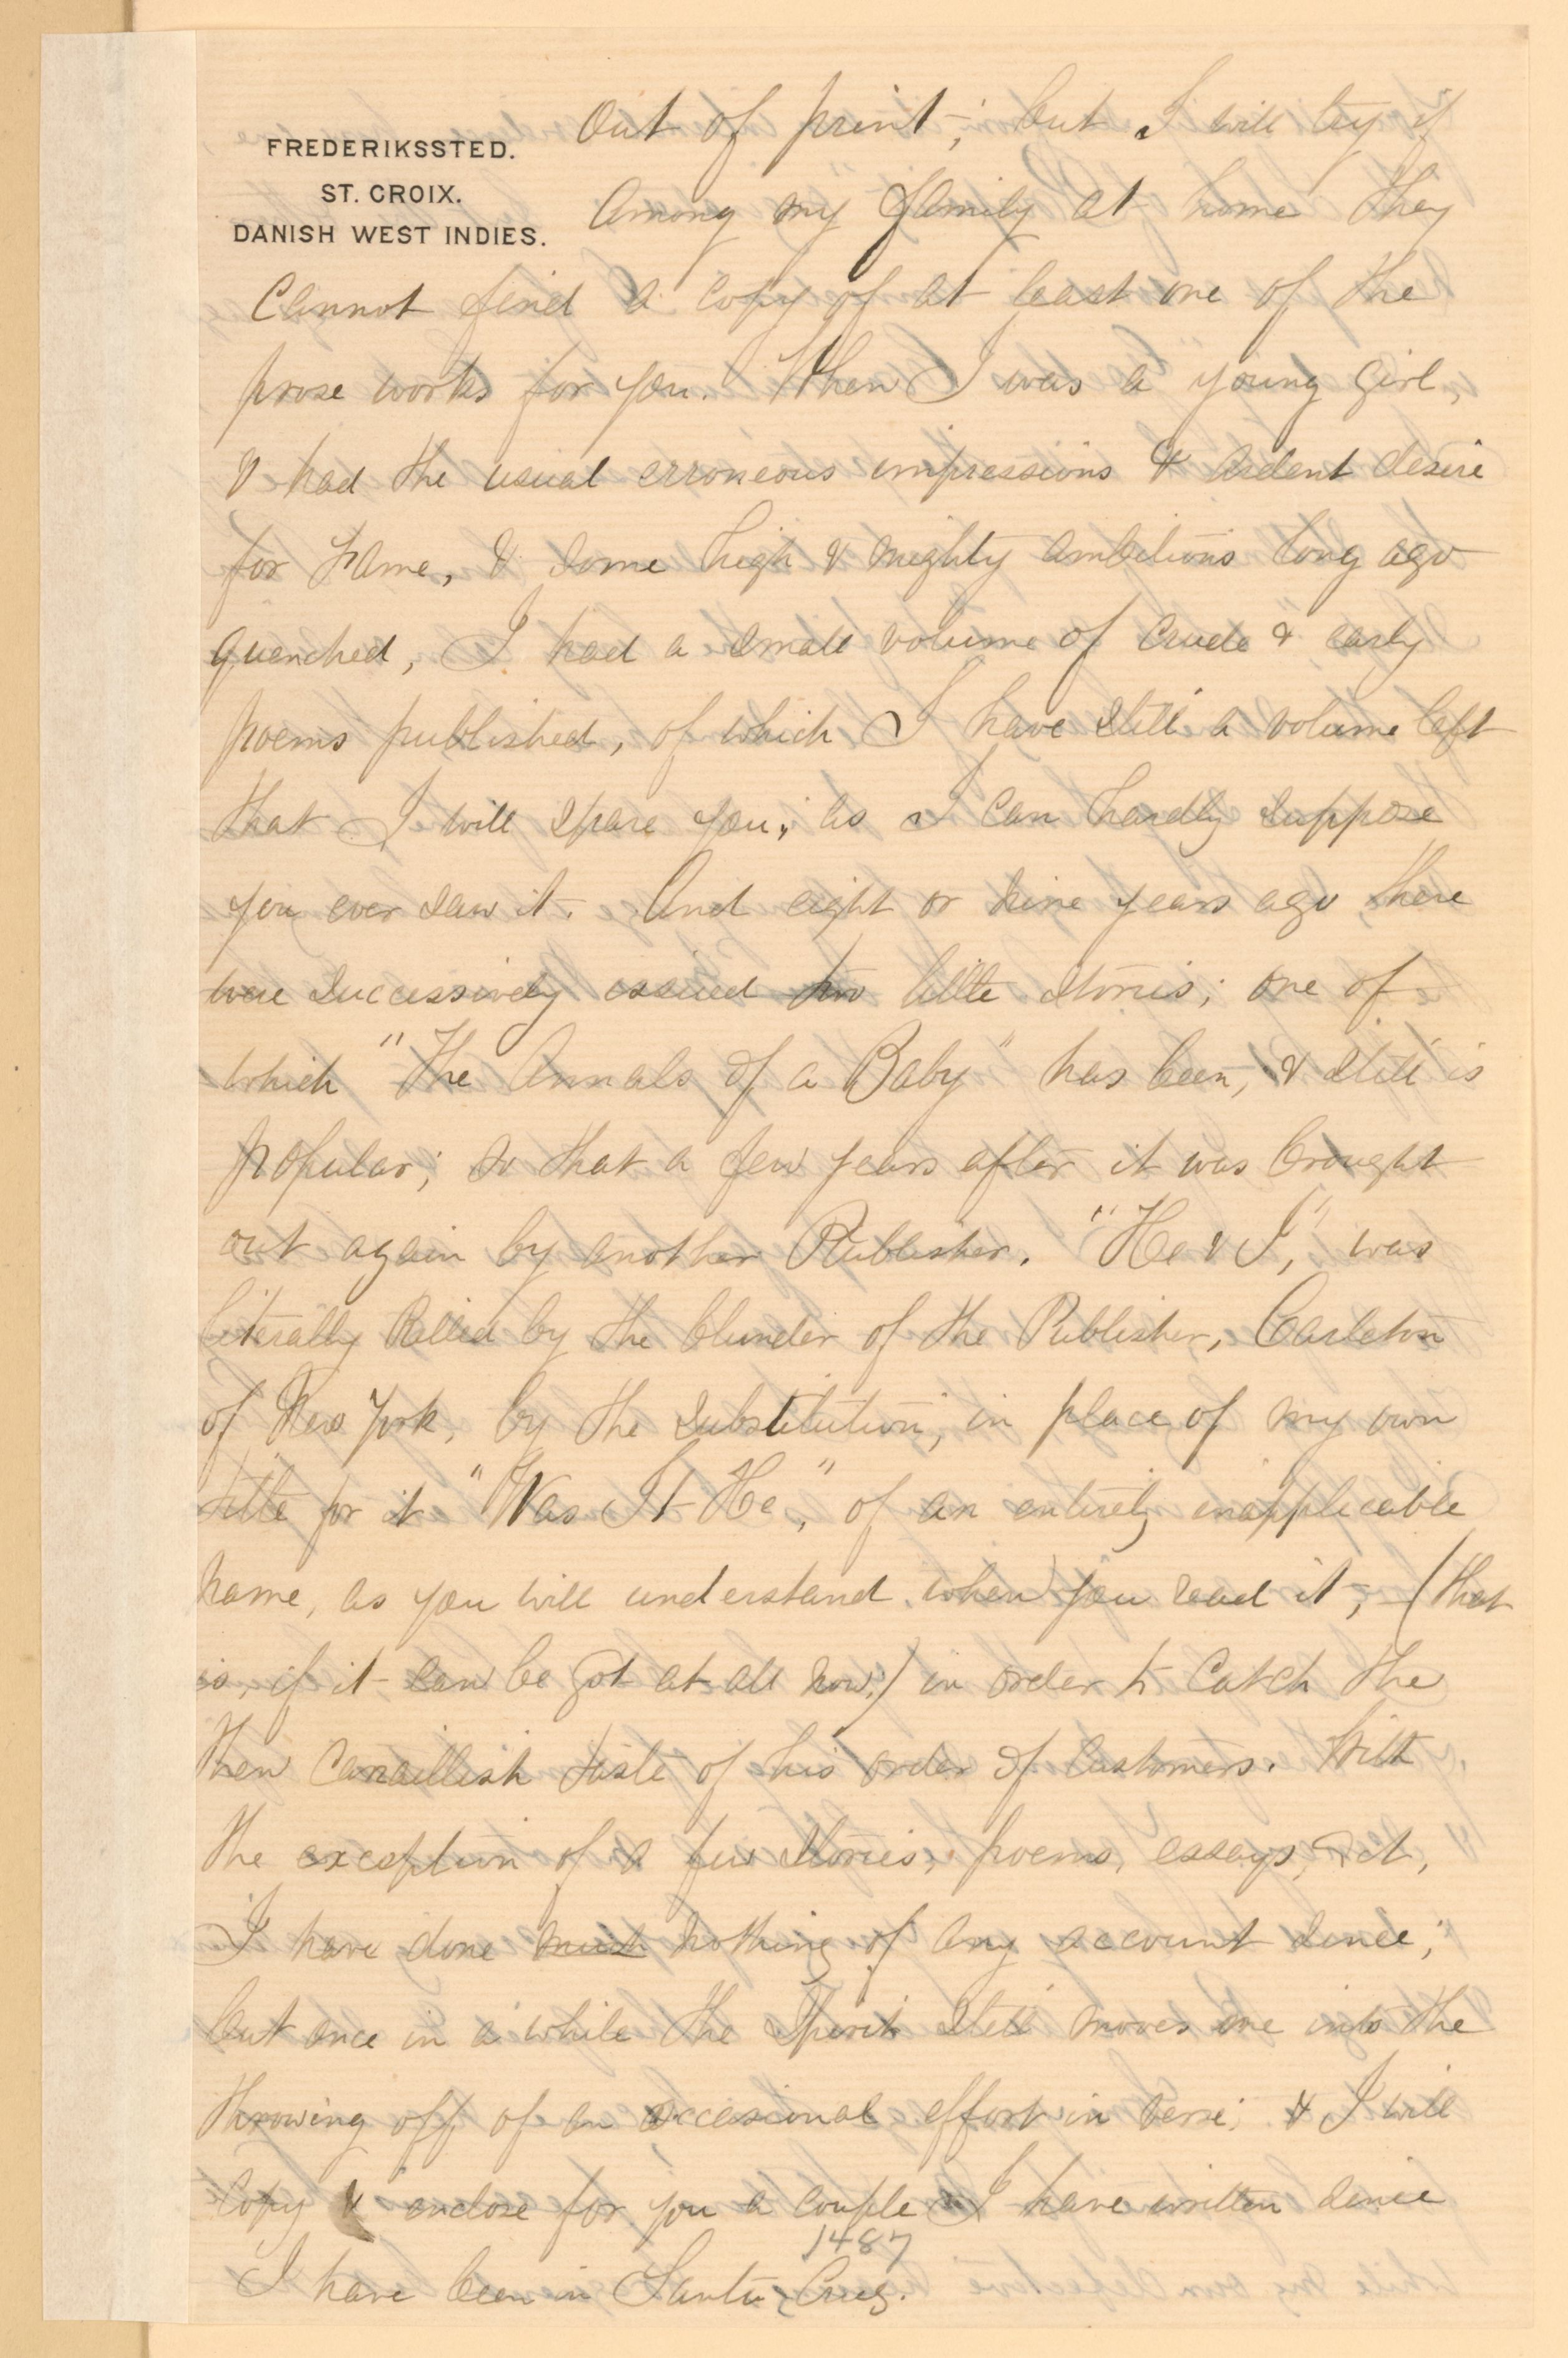 FREDERIKSSTED.
ST. CROIX.
DANISH WEST INDIES.
Out of print; but I will try if
among my family at home they
cannot find a copy of at least one of the
prose works for you. When I was a young girl,
& had the usual erroneous impressions & ardent desire
for Fame, & some high & mighty ambitions long ago
quenched, I had a small volume of crude & early
poems published, of which I have still a volume left
that I will spare you; as I can hardly suppose
you ever saw it. And eight or nine years ago there
were successively issued two little stories; one of
which "The Annals of a Baby" has been, & still is
popular; so that a few years after it was brought
out again by another Publisher. "He & I," was
literally killed by the blunder of the Publisher, Carleton
of New York, by the substitution, in place of my own
title for it "Was It He," of an entirely inapplicable
name, as you will understand when you read it; (that
is, if it can be got at all now.) in order to catch the
then canaillish taste of his order of customers. With
the exception of a few stories, poems, essays, &ct,
I have done much nothing of any account since;
but once in a while the Spirit still moves me into the
throwing off of an occasional effort in verse; & I will
copy & enclose for you a couple I have written since
1487
I have been in Santa Cruz.